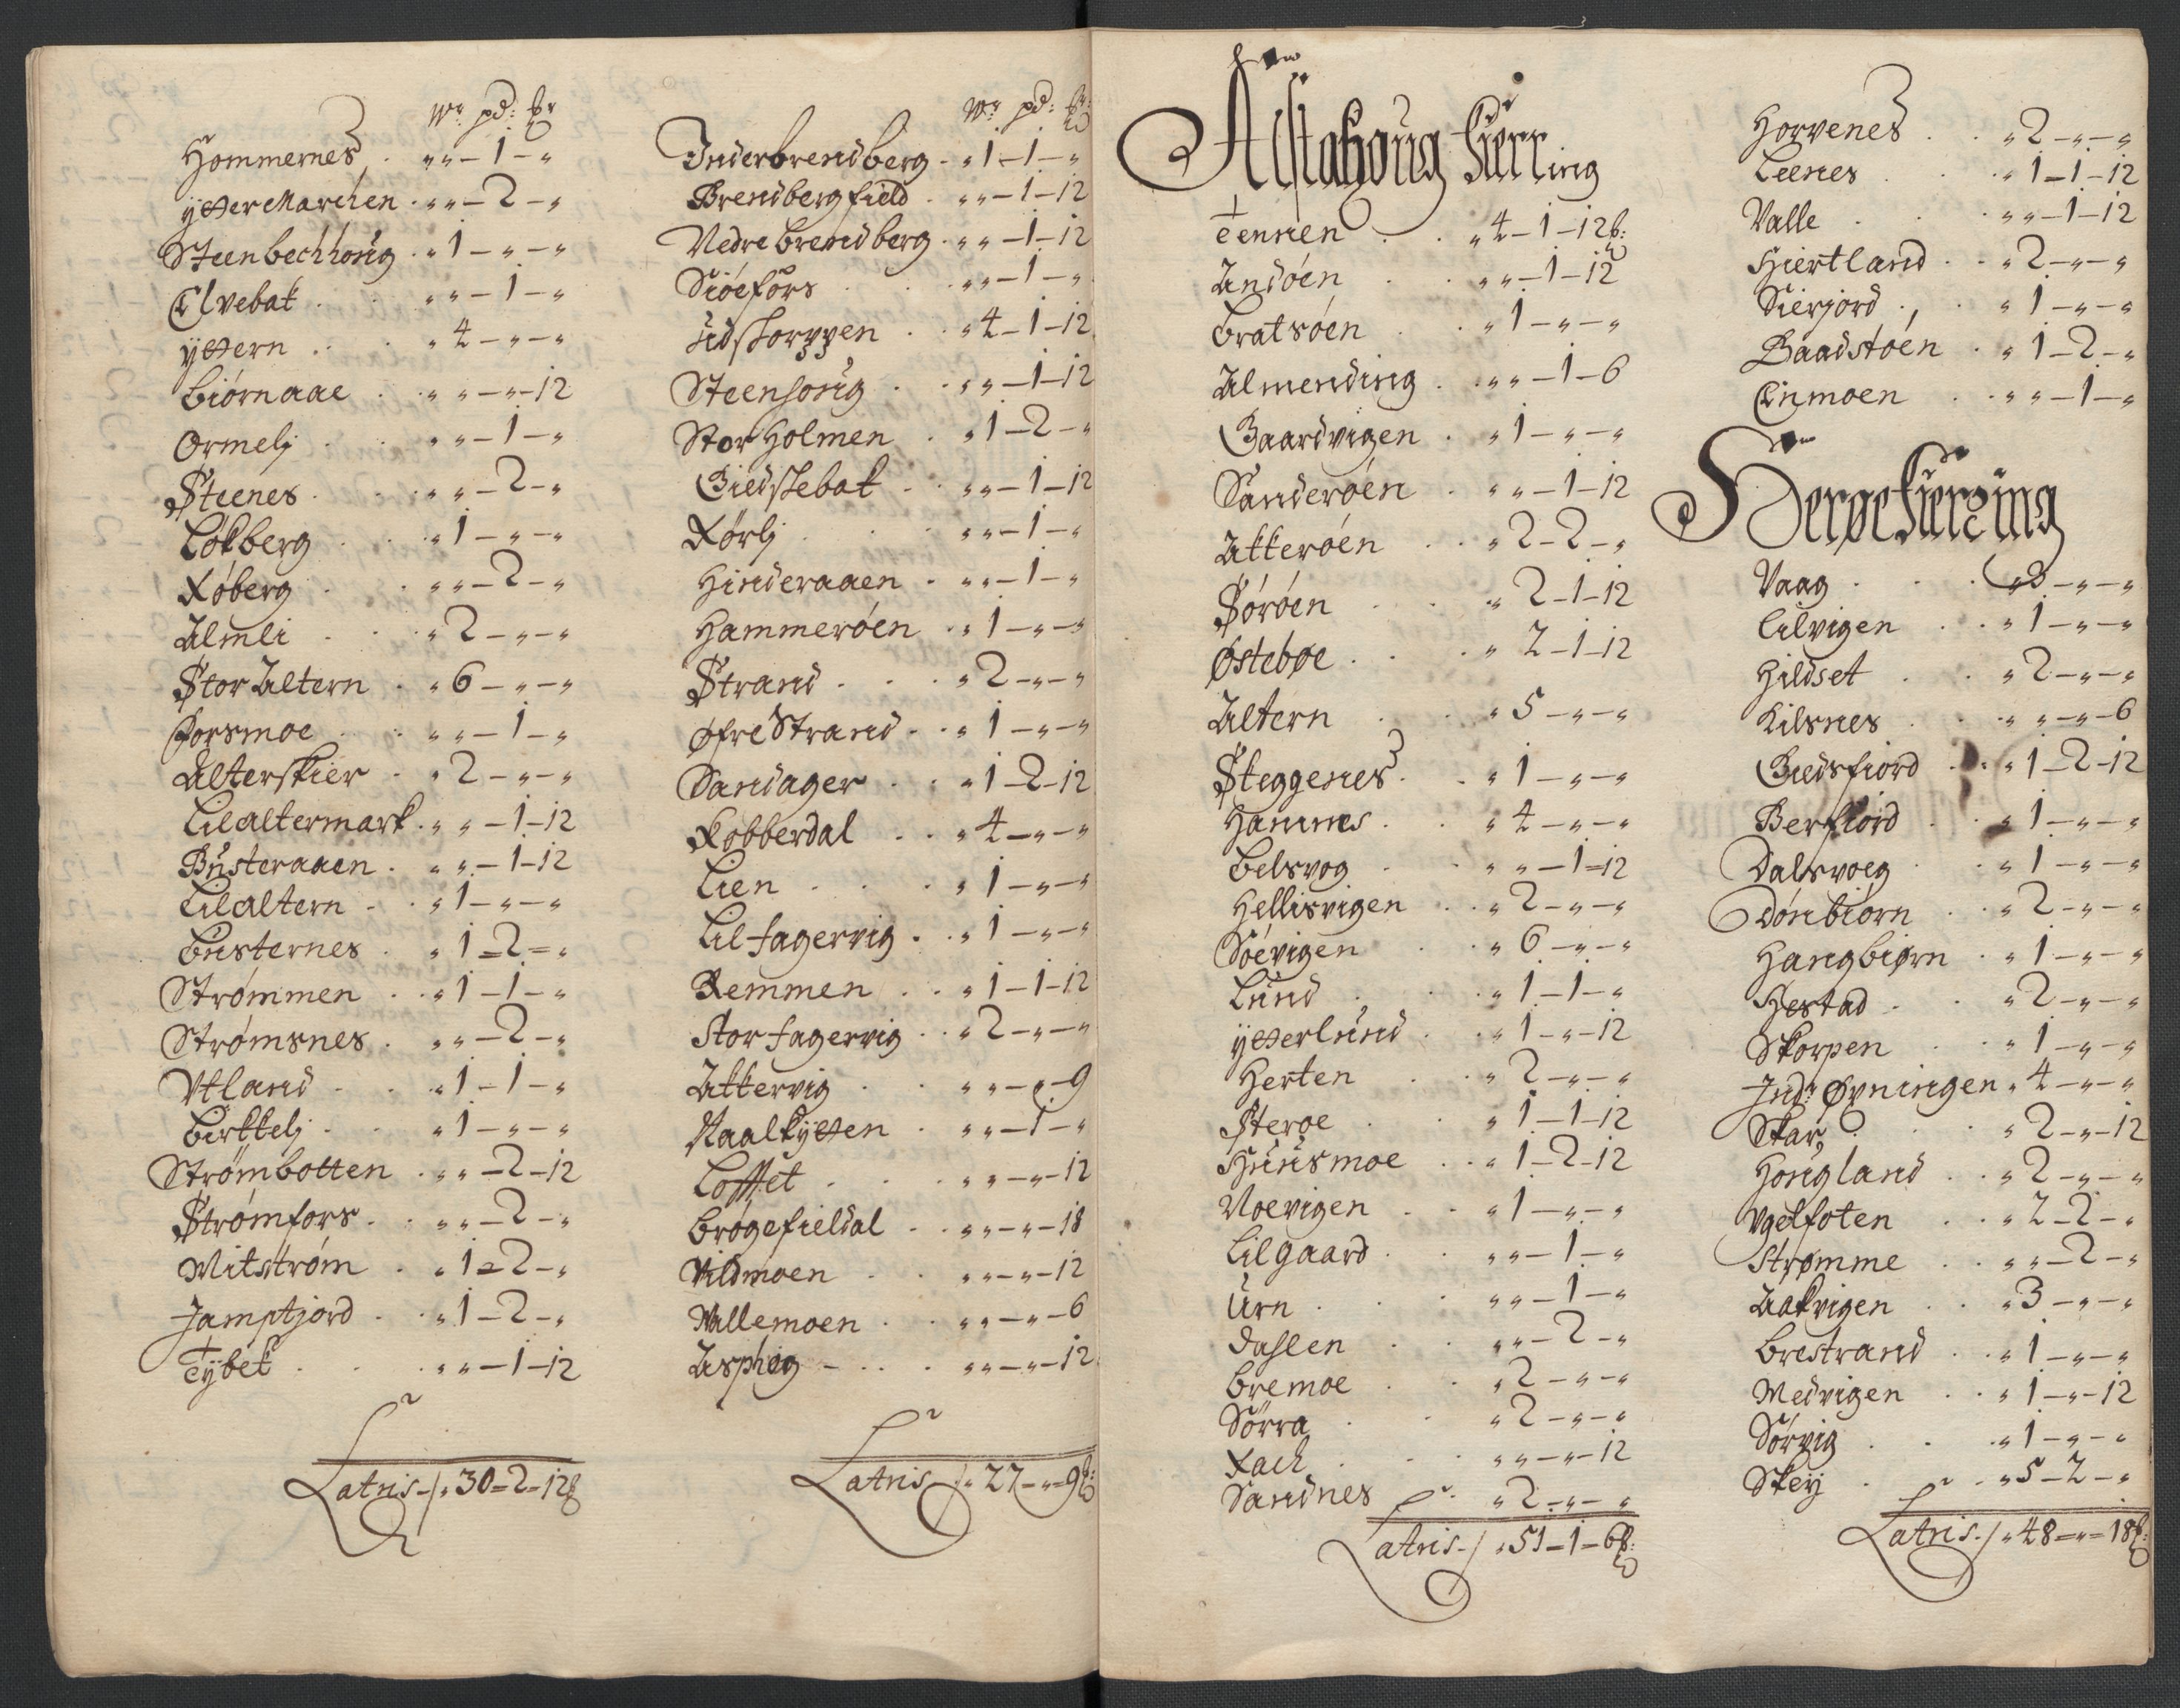 Wr pd: ℔r
Hommernes . „ „ – 1 – „
ytter Marchen . „ „ – 2 – „
Steenbechhoug . „ 1 – „ – „
Elvebak . . „ „ – 1 – „
yttern . . „ 4 – „ – „
Biørnaae . „ „ – „ – 12
Ormelj . . „ „ – 1 – „
Steenes . . „ „ – 2 – „
Løkberg . . „ 1 – „ – „
Røberg . . „ „ – 2 – „
Almli . . „ 2 – „ – „
Stor Altern . „ 6 – „ – „
Forsmoe . . „ „ – 1 – „
Alterskier . „ 2 – „ – „
Lilaltermark . „ „ – 1 – 12
Busteraaen . „ „ – 1 – 12
Lilaltern . . „ 1 – „ – „
Busternes . „ 1 – 2 – „
Strømmen . . „ 1 – 1 – „
Strømsnes . „ „ – 2 – „
Vtland . . „ 1 – 1 – „
Birkkelj . . „ 1 – „ – „
Strømbotten . „ „ – 2 – 12
Strømfors . . „ „ – 2 – „
Mitstrøm . „ 1 – 2 – „
Jamptjord . . „ 1 – 2 – „
Tybek . . „ „ – 1 – 12
Latris / „ 30 – 2 – 12 ℔
Wr pd: ℔r:
Inderbrendberg . „ 1 – 1 – „
Brendbergfield . „ „ – 1 – 12
Nedre brendberg . „ „ – 1 – 12
Siøefors . . „ „ – 1 – „
Udskorppen . . „ 4 – 1 – 12
Steenhoug . . „ „ – 1 – 12
Stor Holmen . „ 1 – 2 – „
Giedskebak . . „ „ – 1 – 12
Rørlj . . „ „ – 1 – „
Hinderaaen . „ „ – 1 – „
Hammerøen . . „ 1 – „ – „
Strand . . . „ 2 – „ – „
Øfre Strand . . „ 1 – „ – „
Sandager . . „ 1 – 2 – 12
Kobberdal . . „ 4 – „ – „
Lien . . . „ 1 – „ – „
Lil fagervig . . „ 1 – „ – „
Remmen . . „ 1 – 1 – 12
Stor fagervig . . „ 2 – „ – „
Attervig . . „ „ – „ – 9
Naalkytten . „ „ – 1 – „
Lofftet . . „ „ – „ – 12
Brøgefieldal . . „ „ – „ – 18
Vildmoen . . „ „ – „ – 12
Wallemoen . . „ „ – „ – 6
Aspheig . . . „ „ – „ – 12
Latris / „ 27 – „ – 9 ℔:
Alstahoug fierring
Tennen . . „ 4 – 1 – 12 ℔:
Andøen . . „ „ – 1 – 12
Bratsøen . . „ 1 – „ – „
Almending . . „ „ – 1 – 6
Gaardvigen . „ 1 – „ – „
Sanderøen . „ „ – 1 – 12
Atterøen . . „ 2 – 2 – „
Sørøen . . „ 2 – 1 – 12
Østebøe . . „ 2 – 1 – 12
Altern . . „ 5 – „ – „
Steggenes . . „ 1 – „ – „
Hannes . . „ 4 – „ – „
Belsvog . . „ „ – 1 – 12
Hellisvigen . . „ 2 – „ – „
Søevigen . . „ 6 – „ – „
Lund . . „ 1 – 1 – „
ytterlund . . „ 1 – „ – 12
Herten . . „ 2 – „ – „
Sterøe . . „ 1 – 1 – 12
Huusmoe . . „ 1 – 2 – 12
Noevigen . . „ 1 – „ – „
Lilgaard . . „ „ – 1 – „
Urn . . „ „ – 1 – „
Dahlen . . „ „ – 2 – „
Bremoe . . „ 2 – „ – „
Sørra . . „ 2 – „ – „
Rach . . „ „ – „ – 12
Sandnes . „ 2 – „ – „
Latris / „ 51 – 1 – 6 ℔:
Horvenes . . „ 2 – „ – „
Leenes . . „ 1 – 1 – 12
Valle . . „ „ – 1 – 12
Hiertland . . „ 2 – „ – „
Sierjord . . „ 1 – „ – „
Baadstøen . „ 1 – 2 – „
Einmoen . . „ „ – 1 – „
Herøe fierring
Vaag . . . „ 3 – „ – „
Lilvigen . . „ 1 – „ – „
Hildset . . „ 2 – „ – „
Kilsnes . . „ „ – „ – 6
Giedsfiord . „ 1 – 2 – 12
Berfiord . . „ 1 – „ – „
Dalsvoeg . . „ 1 – „ – „
Dønbiørn . . „ 2 – „ – „
Hangbiørn . . „ 1 – „ – „
Hestad . . „ 2 – „ – „
Skorpen . . „ 1 – „ – „
Jndr Øvningen „ 4 – „ – „
Skar . . „ 2 – „ – 12
Hougland . . „ 2 – „ – „
Vgelfoten . . „ 2 – 2 – „
Strømme . . „ „ – 2 – „
Aakvigen . . „ 3 – „ – „
Brestrand . . „ 1 – „ – „
Medvigen . . „ 1 – „ – 12
Sørvig . . „ 1 – „ – „
Skey . . „ 5 – 2 – „
Latris / „ 48 – „ – 18 ℔: